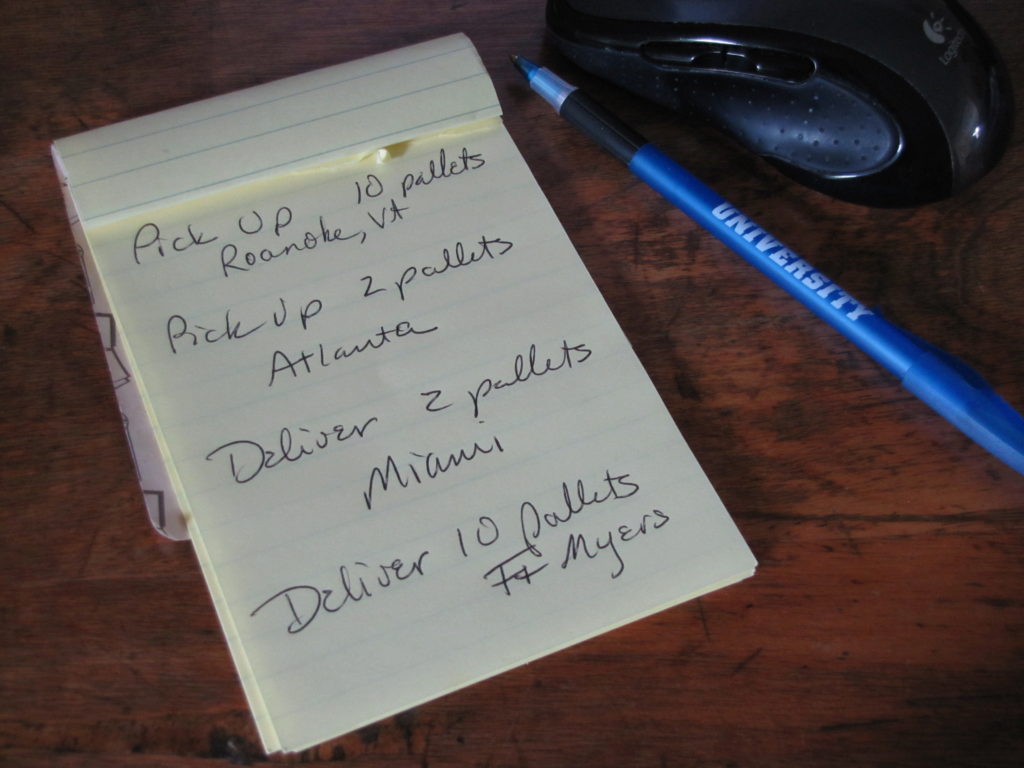 Pick Up 10 pallets
Roanoke, VA
Pick Up 2 pallets
Atlanta
Deliver 2 pallets
Miami
Deliver 10 pallets
Ft Myers
UNIVERSITY
Logitech